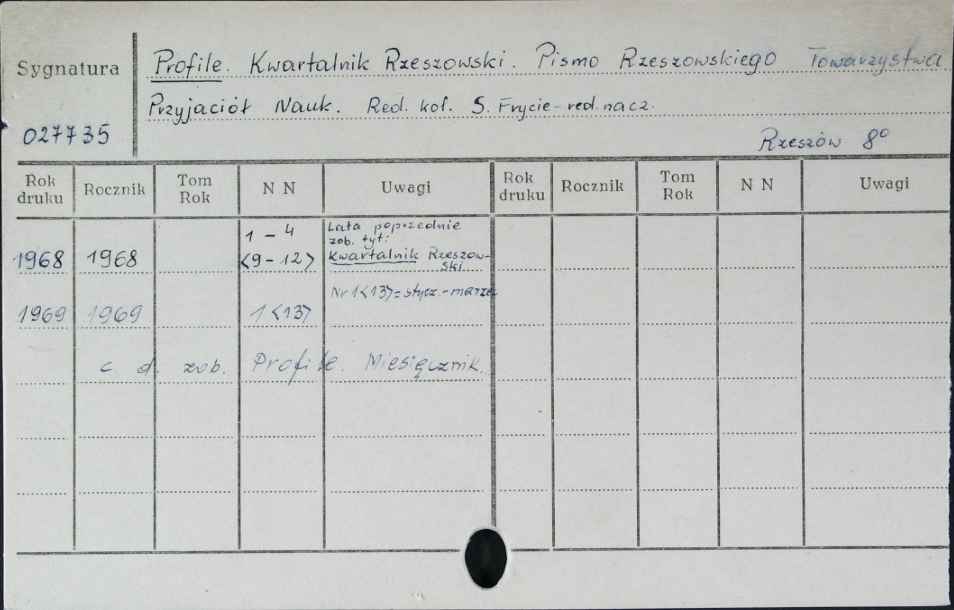 Sygnatura
027735
Profile. Kwartalnik Rzeszowski. Pismo Rzeszowskiego Towarzystwa
Przyjaciół Nauk. Red. kol. S. Frycie - red. nacz.
Rzeszów 8°
Rok druku Rocznik Tom Rok N N Uwagi Rok druku Rocznik Tom Rok N N Uwagi
1968 1968 1 - 4 <9 - 12> Lata poprzednie zob. tyt: Kwartalnik Rzeszowski
1969 1969 1 <13> Nr 1<13> = stycz. - marzec
c d. zob. Profile. Miesięcznik.